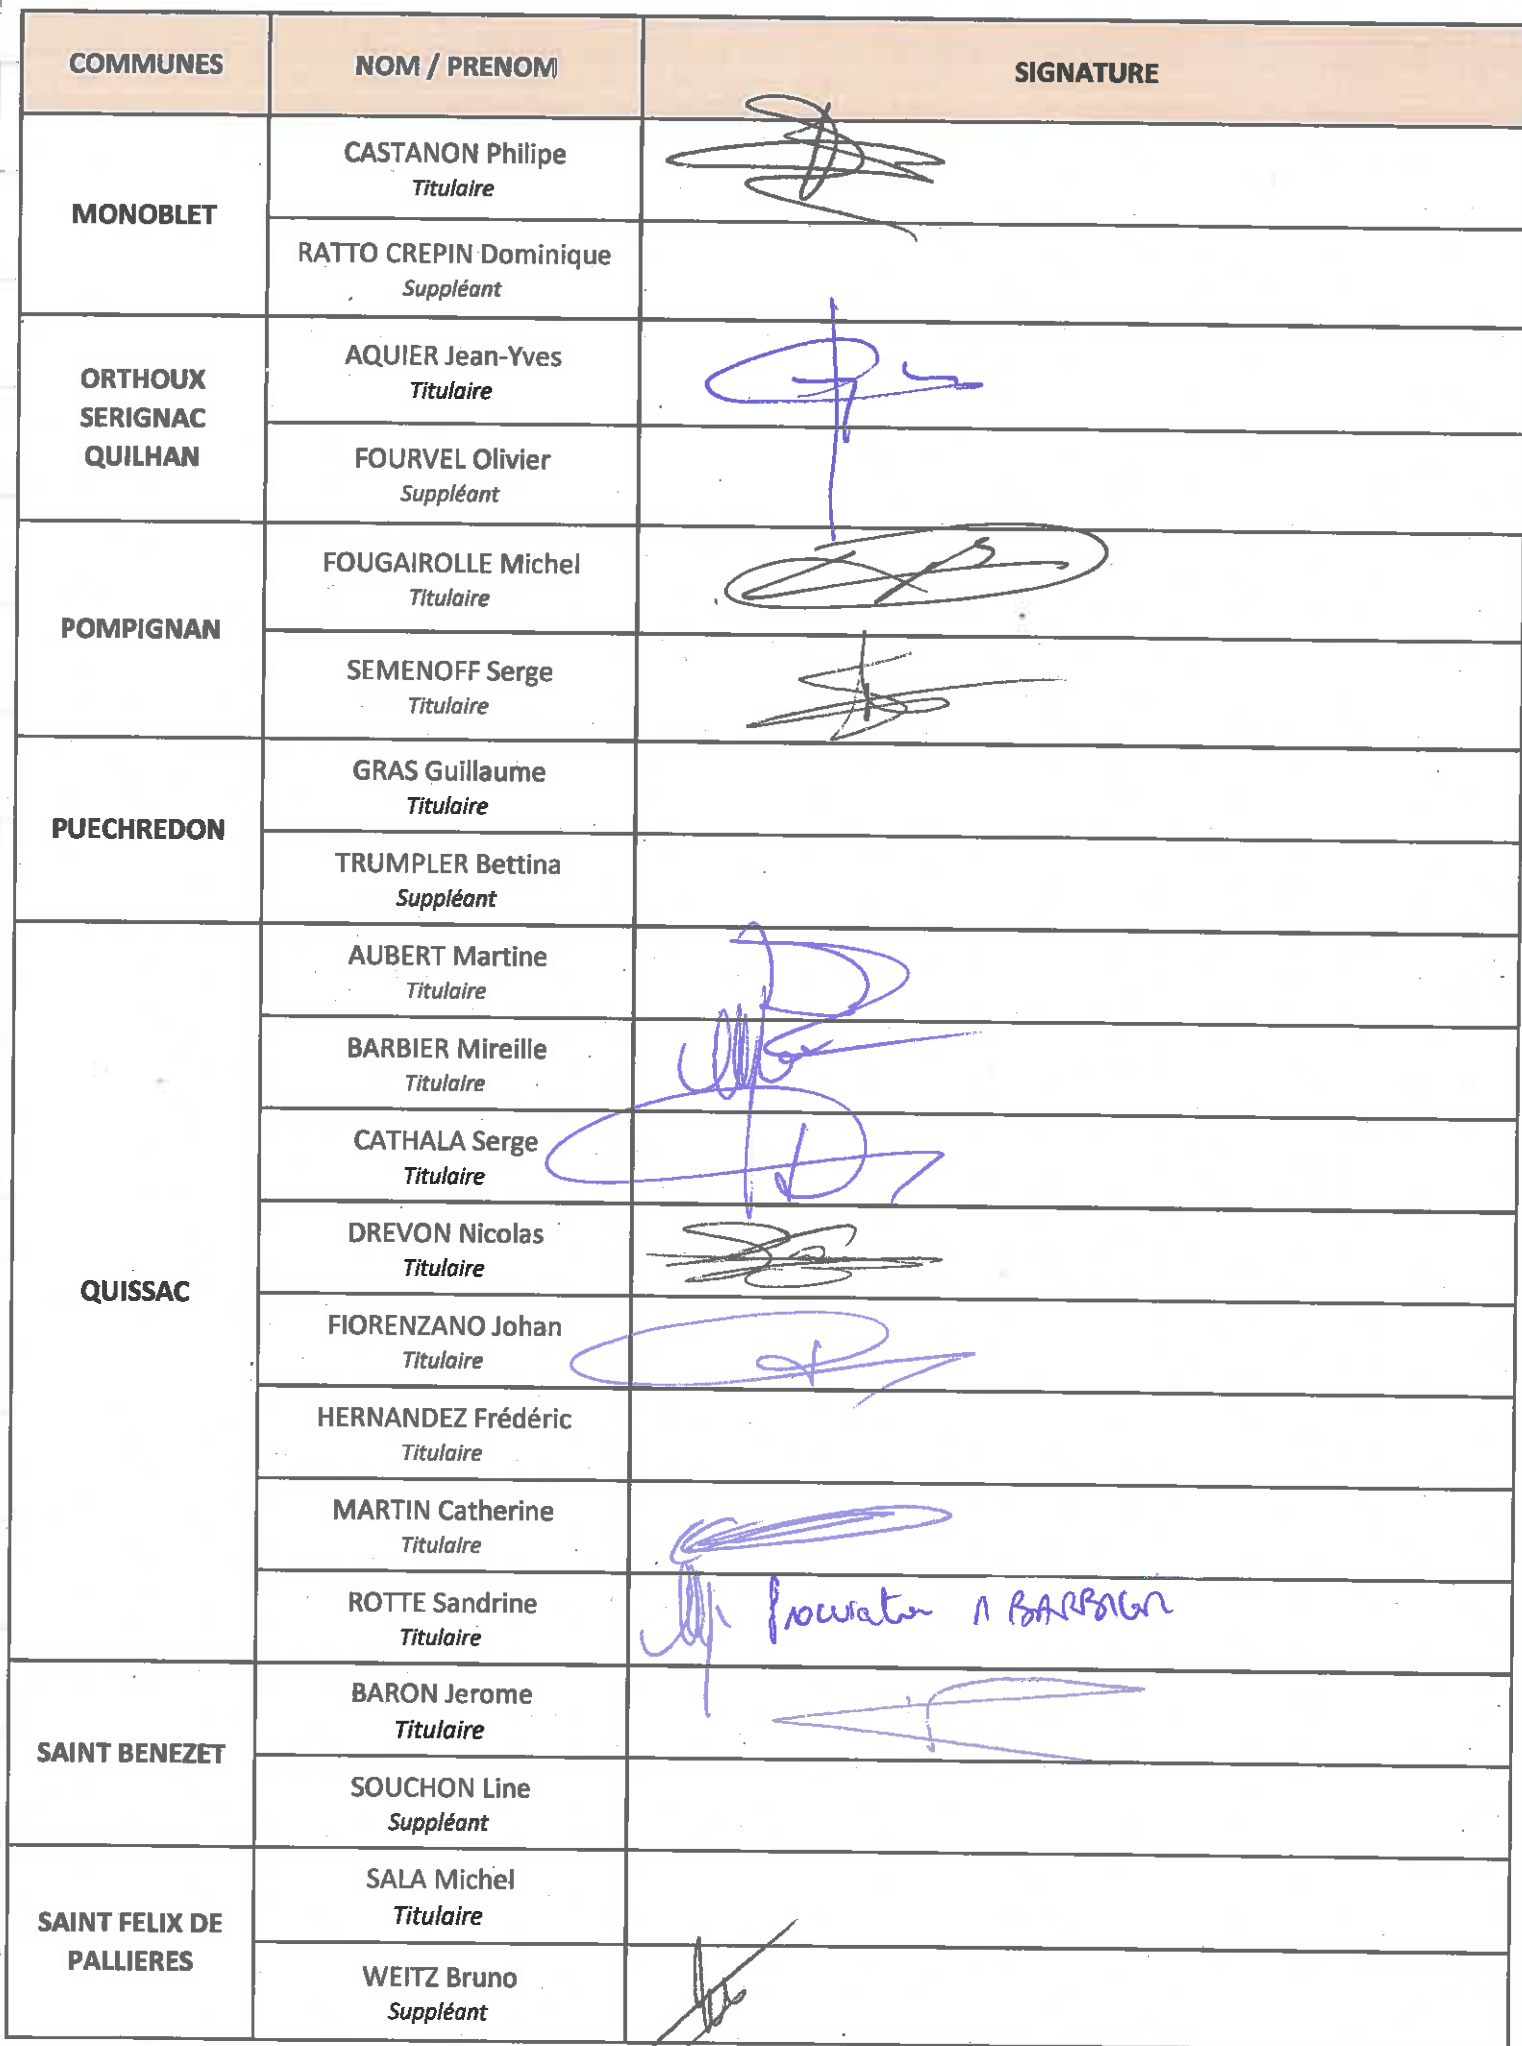 COMMUNES
NOM / PRENOM
SIGNATURE
MONOBLET
CASTANON Philipe
Titulaire
RATTO CREPIN Dominique
Suppléant
ORTHOUX
SERIGNAC
QUILHAN
AQUIER Jean-Yves
Titulaire
FOURVEL Olivier
Suppléant
POMPIGNAN
FOUGAIROLLE Michel
Titulaire
SEMENOFF Serge
Titulaire
PUECHREDON
GRAS Guillaume
Titulaire
TRUMPLER Bettina
Suppléant
QUISSAC
AUBERT Martine
Titulaire
BARBIER Mireille
Titulaire
CATHALA Serge
Titulaire
DREVON Nicolas
Titulaire
FIORENZANO Johan
Titulaire
HERNANDEZ Frédéric
Titulaire
MARTIN Catherine
Titulaire
ROTTE Sandrine
Titulaire
Procuration BARBIER
SAINT BENEZET
BARON Jerome
Titulaire
SOUCHON Line
Suppléant
SAINT FELIX DE
PALLIERES
SALA Michel
Titulaire
WEITZ Bruno
Suppléant